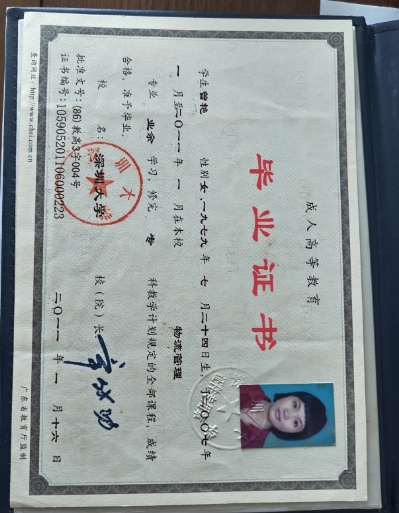 成人高等教育
毕业证书
学生 曾艳 性别 女,一九七九年 七 月二十四日生,于二〇〇七年
一 月至二〇一一年 一 月在本校 物流管理
专业 业余 学习,修完 专 科教学计划规定的全部课程,成绩
合格,准予毕业。
校 名:深圳大学 校(院)长
批准文号:(86)教高3字004号
证书编号:105905201106000223 二〇一一 年 一 月十六日
查询网址:http://www.chsi.com.cn 广东省教育厅监制